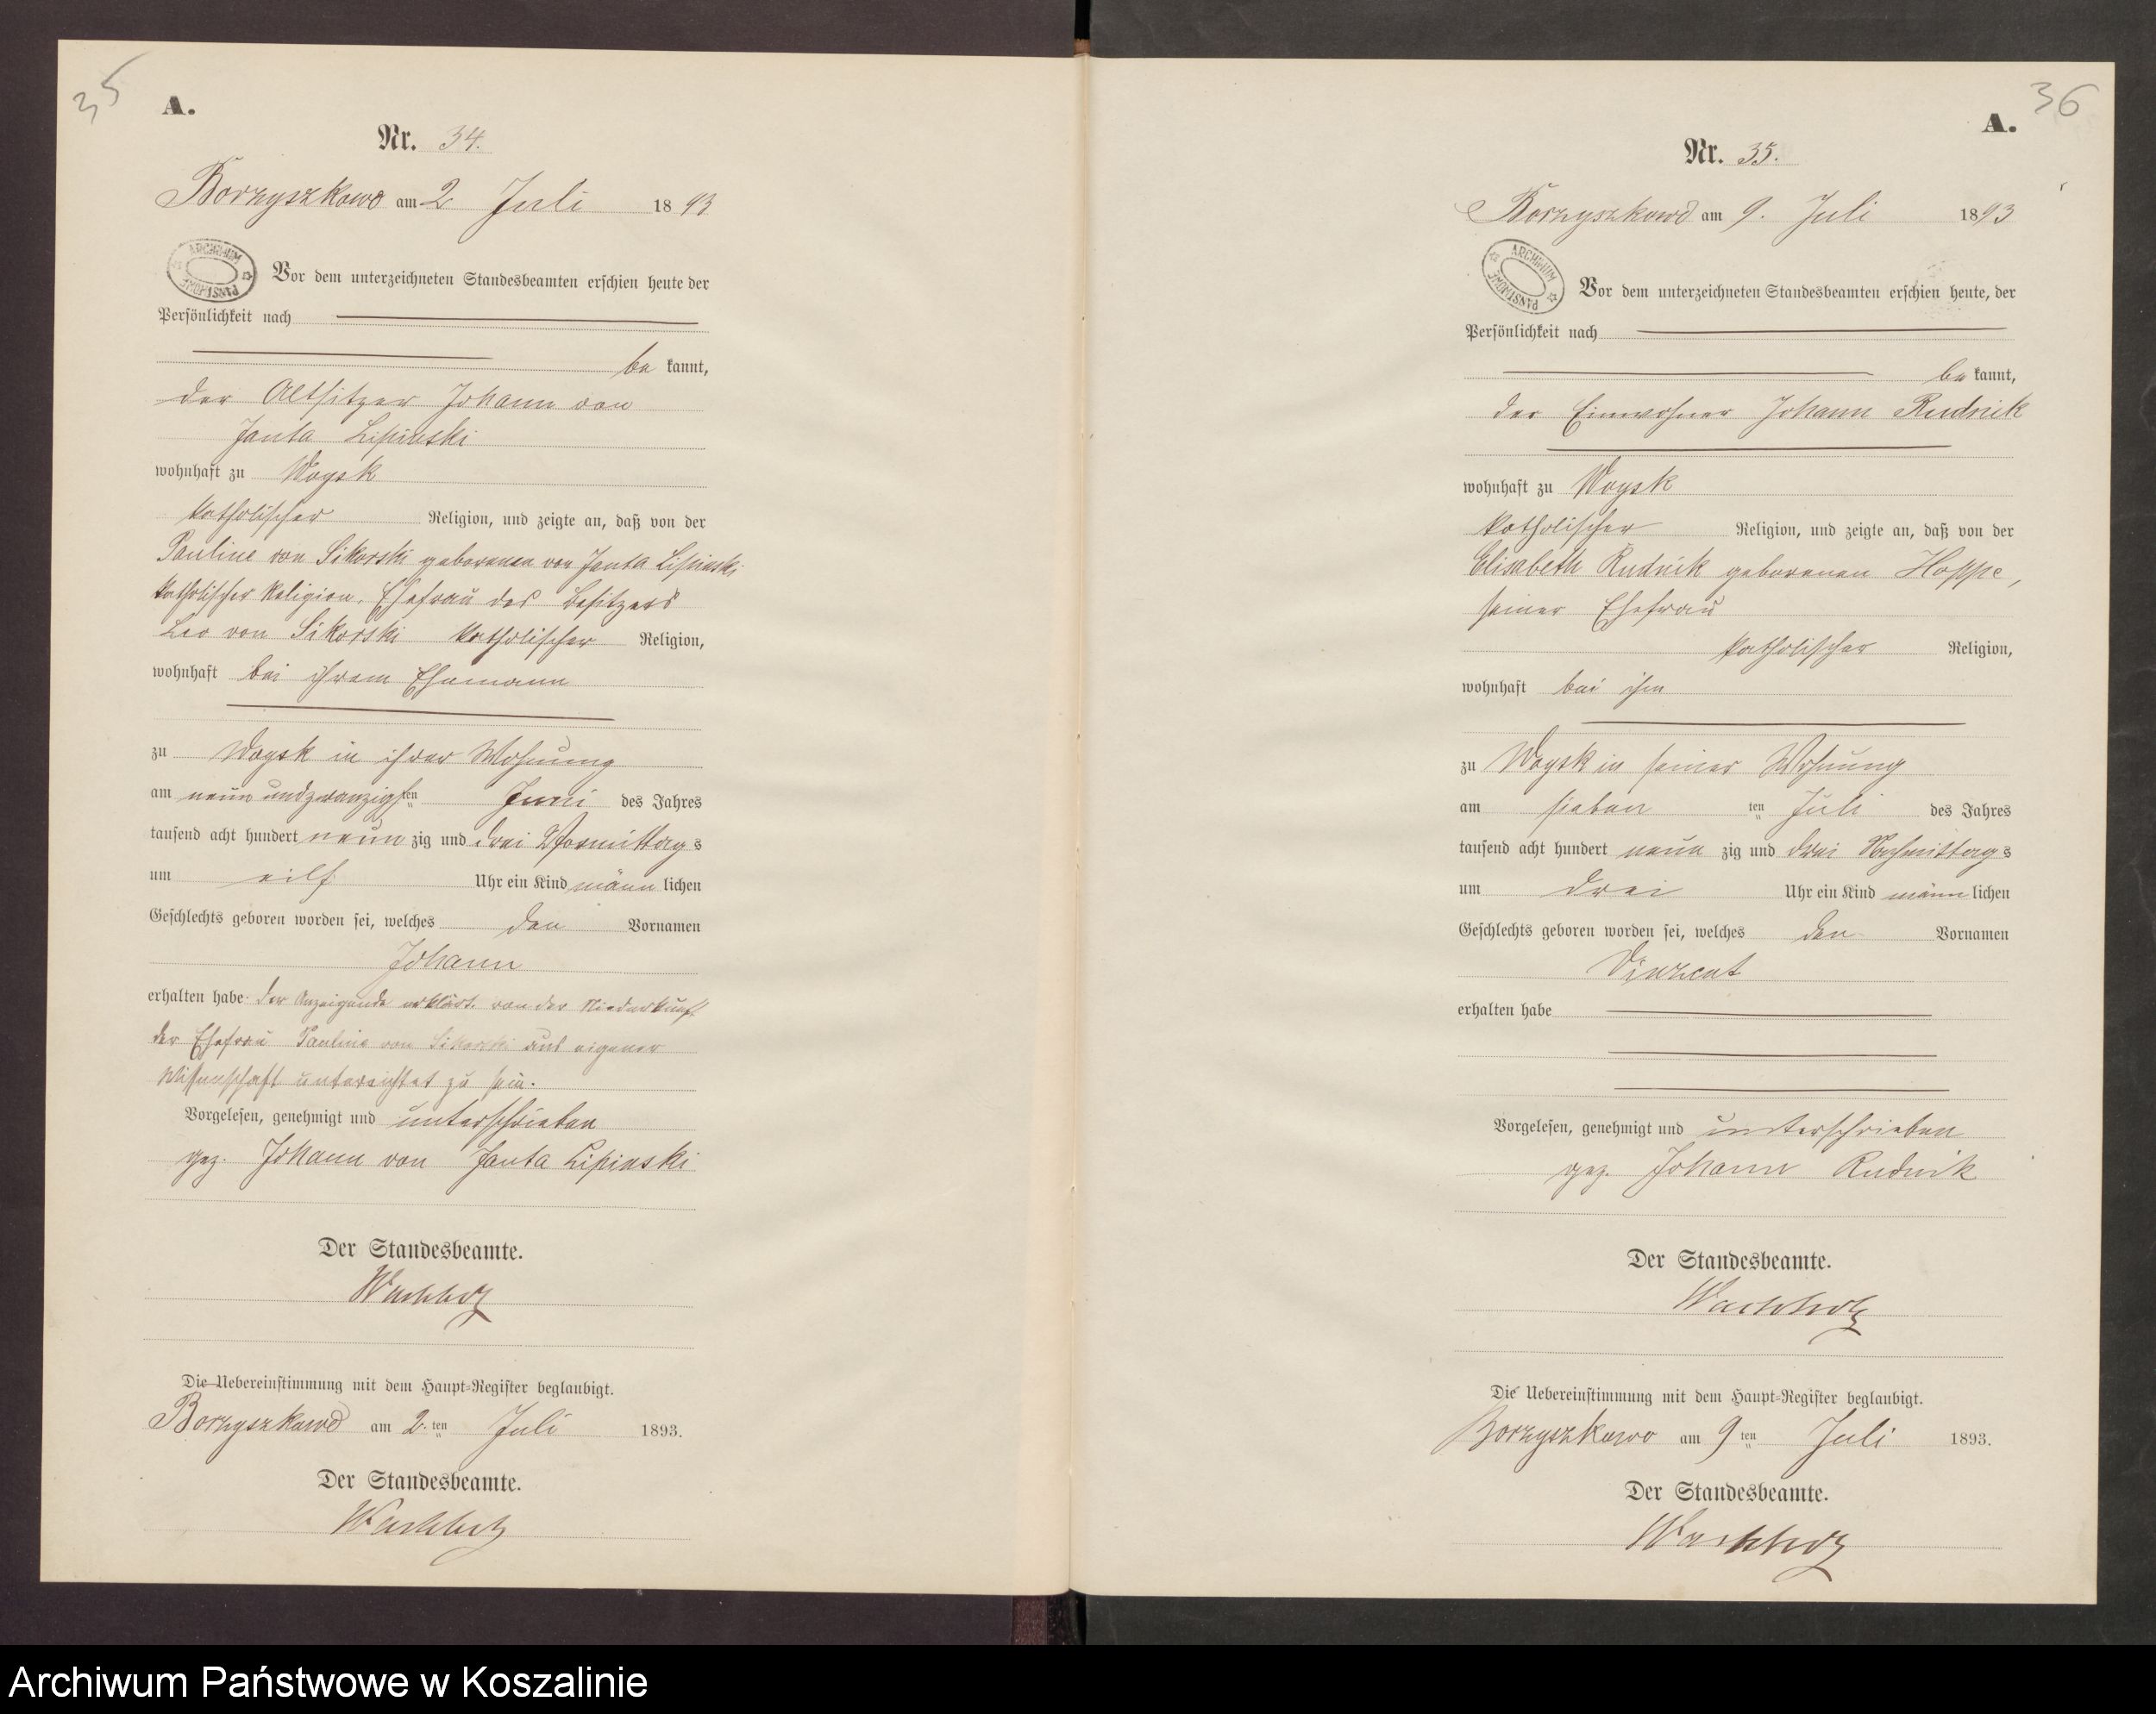 35
A.
Nr. 34.
Borzyszkowo am 2 Juli 1893
ARCHIWUM PAŃSTWOWE
Vor dem unterzeichneten Standesbeamten erschien heute der
Persönlichkeit nach
be kannt,
der Altsitzer Johann von
Janta Lipinski
wohnhaft zu Woysk
katholischer Religion, und zeigte an, daß von der
Pauline von Sikorski geborenen von Janta Lipinski
katholischer Religion, Ehefrau des Besitzers
Leo von Sikorski katholischer Religion,
wohnhaft bei ihrem Ehemann
zu Woysk in ihrer Wohnung
am neun und zwanzigsten Juni des Jahres
tausend acht hundert neun zig und drei Vormittags
um eilf Uhr ein Kind männ lichen
Geschlechts geboren worden sei, welches den Vornamen
Johann
erhalten habe. Der Anzeigende erklärt, von der Niederkunft
der Ehefrau Pauline von Sikorski aus eigener
Wissenschaft unterrichtet zu sein.
Vorgelesen, genehmigt und unterschrieben
gez. Johann von Janta Lipinski
Der Standesbeamte.
Wachholz
Die Uebereinstimmung mit dem Haupt-Register beglaubigt.
Borzyszkowo am 2ten Juli 1893.
Der Standesbeamte.
Wachholz
36
A.
Nr. 35.
Borzyszkowo am 9. Juli 1893
ARCHIWUM PAŃSTWOWE
Vor dem unterzeichneten Standesbeamten erschien heute, der
Persönlichkeit nach
be kannt,
der Einwohner Johann Rudnik
wohnhaft zu Woysk
katholischer Religion, und zeigte an, daß von der
Elisabeth Rudnik geborenen Hoppe,
seiner Ehefrau
katholischer Religion,
wohnhaft bei ihm
zu Woysk in seiner Wohnung
am sieben ten Juli des Jahres
tausend acht hundert neun zig und drei Nachmittags
um drei Uhr ein Kind männ lichen
Geschlechts geboren worden sei, welches den Vornamen
Vinzent
erhalten habe
Vorgelesen, genehmigt und unterschrieben
gez. Johann Rudnik
Der Standesbeamte.
Wachholz
Die Uebereinstimmung mit dem Haupt-Register beglaubigt.
Borzyszkowo am 9ten Juli 1893.
Der Standesbeamte.
Wachholz
Archiwum Państwowe w Koszalinie